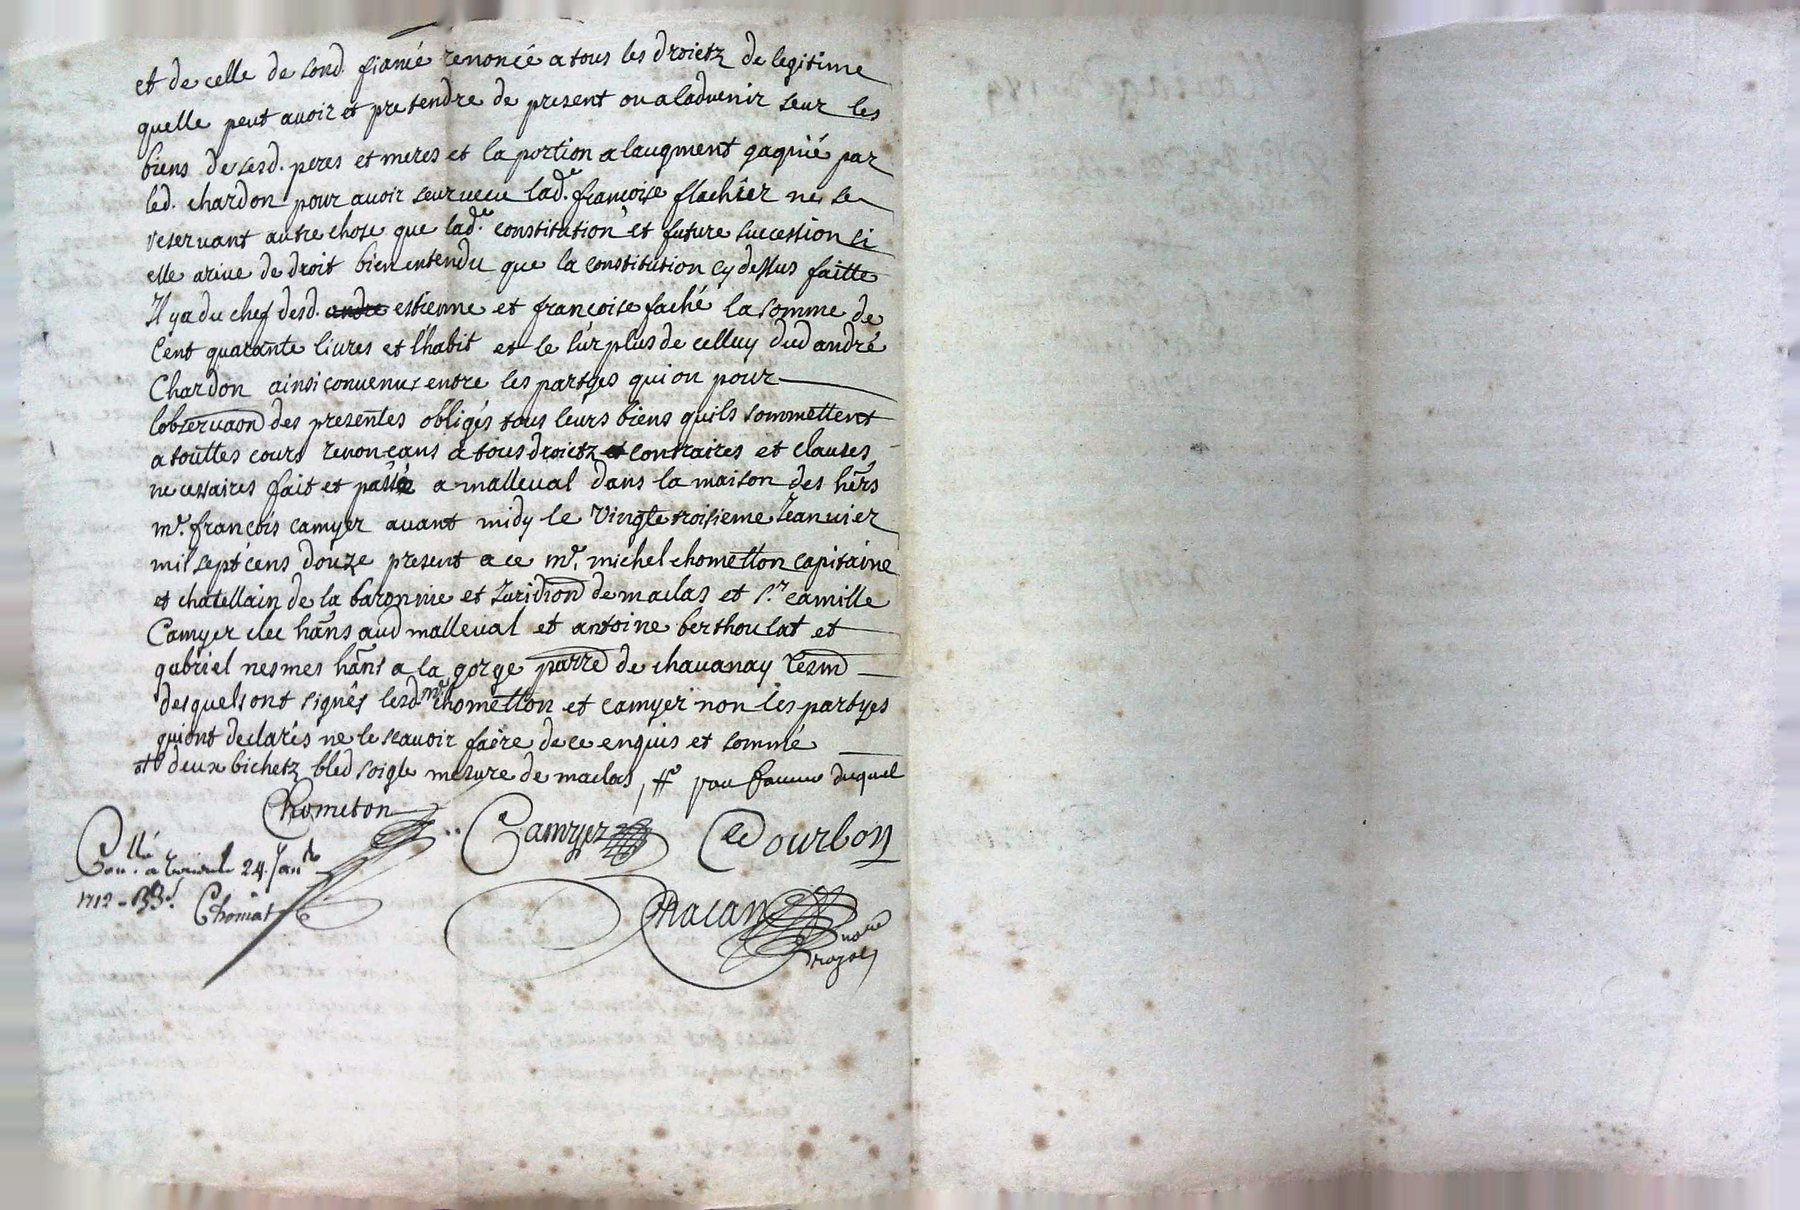 et de celle de sond. fiancé renoncé a tous les droictz de legitime
quelle peut avoir et pretendre de present ou a ladvenir seur les
biens de sesd. peres et meres et la portion a laugment gagnié par
led. chardon pour avoir seurvecu lad.e françoise flachier ne se
reservant autre chose que lad.e constitution et future succession si
elle arive de droit bien entendu que la constitution cy dessus faitte
Il ya du chef desd. andre estienne et françoise faché la somme de
Cent quarante livres et lhabit et le surplus de celluy dud andré
Chardon ainsi convenus entre les partyes qui on pour
lobservaon des presentes obligés tous leurs biens quils sommettent
a touttes cours renonçans a tous droictz et contraires et clauses
necessaires fait et passé a malleval dans la maison des hers
mr. françois camyer avant midy le Vingt troisieme Jeanvier
mil sept cens douze present a ce mr. michel chometton capitaine
et chatellain de la baronnie et Juridion de maclas et sr. camille
Camyer clec hans aud malleval et antoine berthoulat et
gabriel nesmes hans a la gorge parre de chavanay tesm
desquels ont signés lesd. mes chometton et camyer non les partyes
qui ont declarés ne le scavoir faire de ce enquis et sommé
et deux bichetz bled soigle mesure de maclas, duquel
Chometon
Camyer Dourbon
Conllé a 24. Janr
1712 - Chomat
Chacan
nore
royal